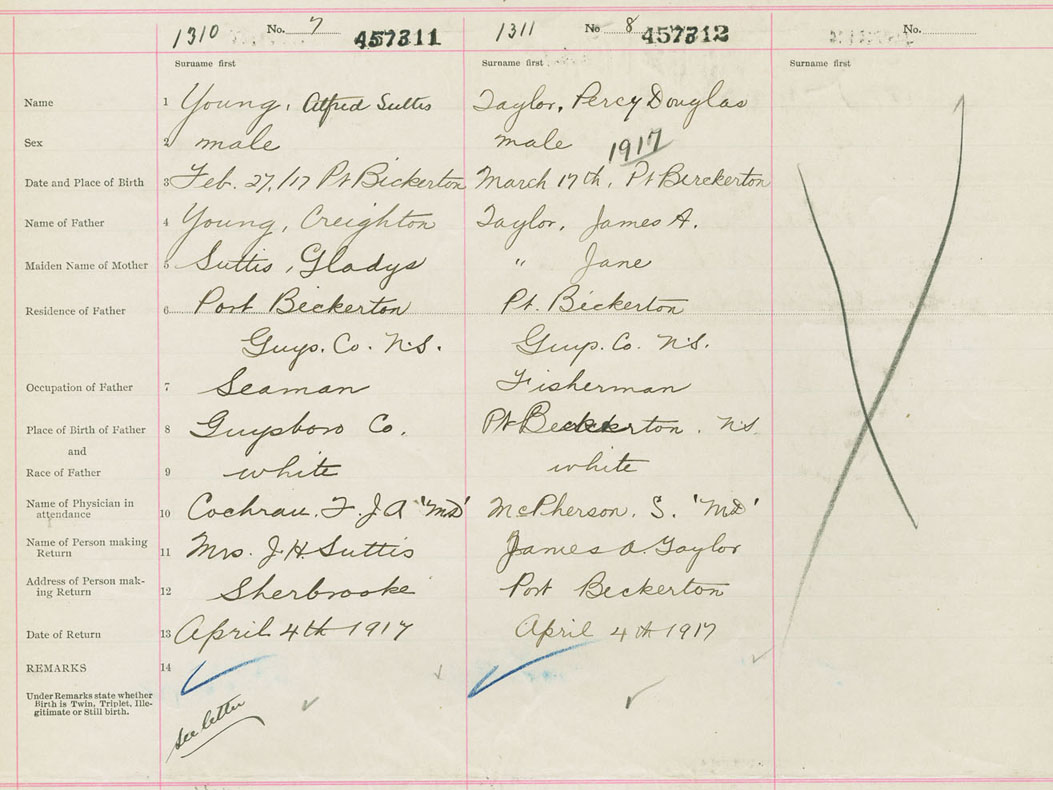 1310 No. 7 457311 1311 No 8 457312 No.
Surname first Surname first Surname first
Name 1 Young, Alfred Suttis Taylor, Percy Douglas
Sex 2 male male 1917
Date and Place of Birth 3 Feb. 27/17 Pt Bickerton March 17th, Pt Birckerton
Name of Father 4 Young, Creighton Taylor, James A.
Maiden Name of Mother 5 Suttis, Gladys " Jane
Residence of Father 6 Port Bickerton Pt. Bickerton
Guys. Co. N.S. Guys. Co. N.S.
Occupation of Father 7 Seaman Fisherman
Place of Birth of Father 8 Guysboro Co. Pt Beckerton. N.S.
and
Race of Father 9 white white
Name of Physician in
attendance 10 Cochran. F. J A "MD" McPherson. S. 'MD'
Name of Person making
Return 11 Mrs. J. H. Suttis James A. Taylor
Address of Person mak-
ing Return 12 Sherbrooke Port Beckerton
Date of Return 13 April 4th 1917 April 4th 1917
REMARKS 14
Under Remarks state whether
Birth is Twin, Triplet, Ille-
gitimate or Still birth.
see letter